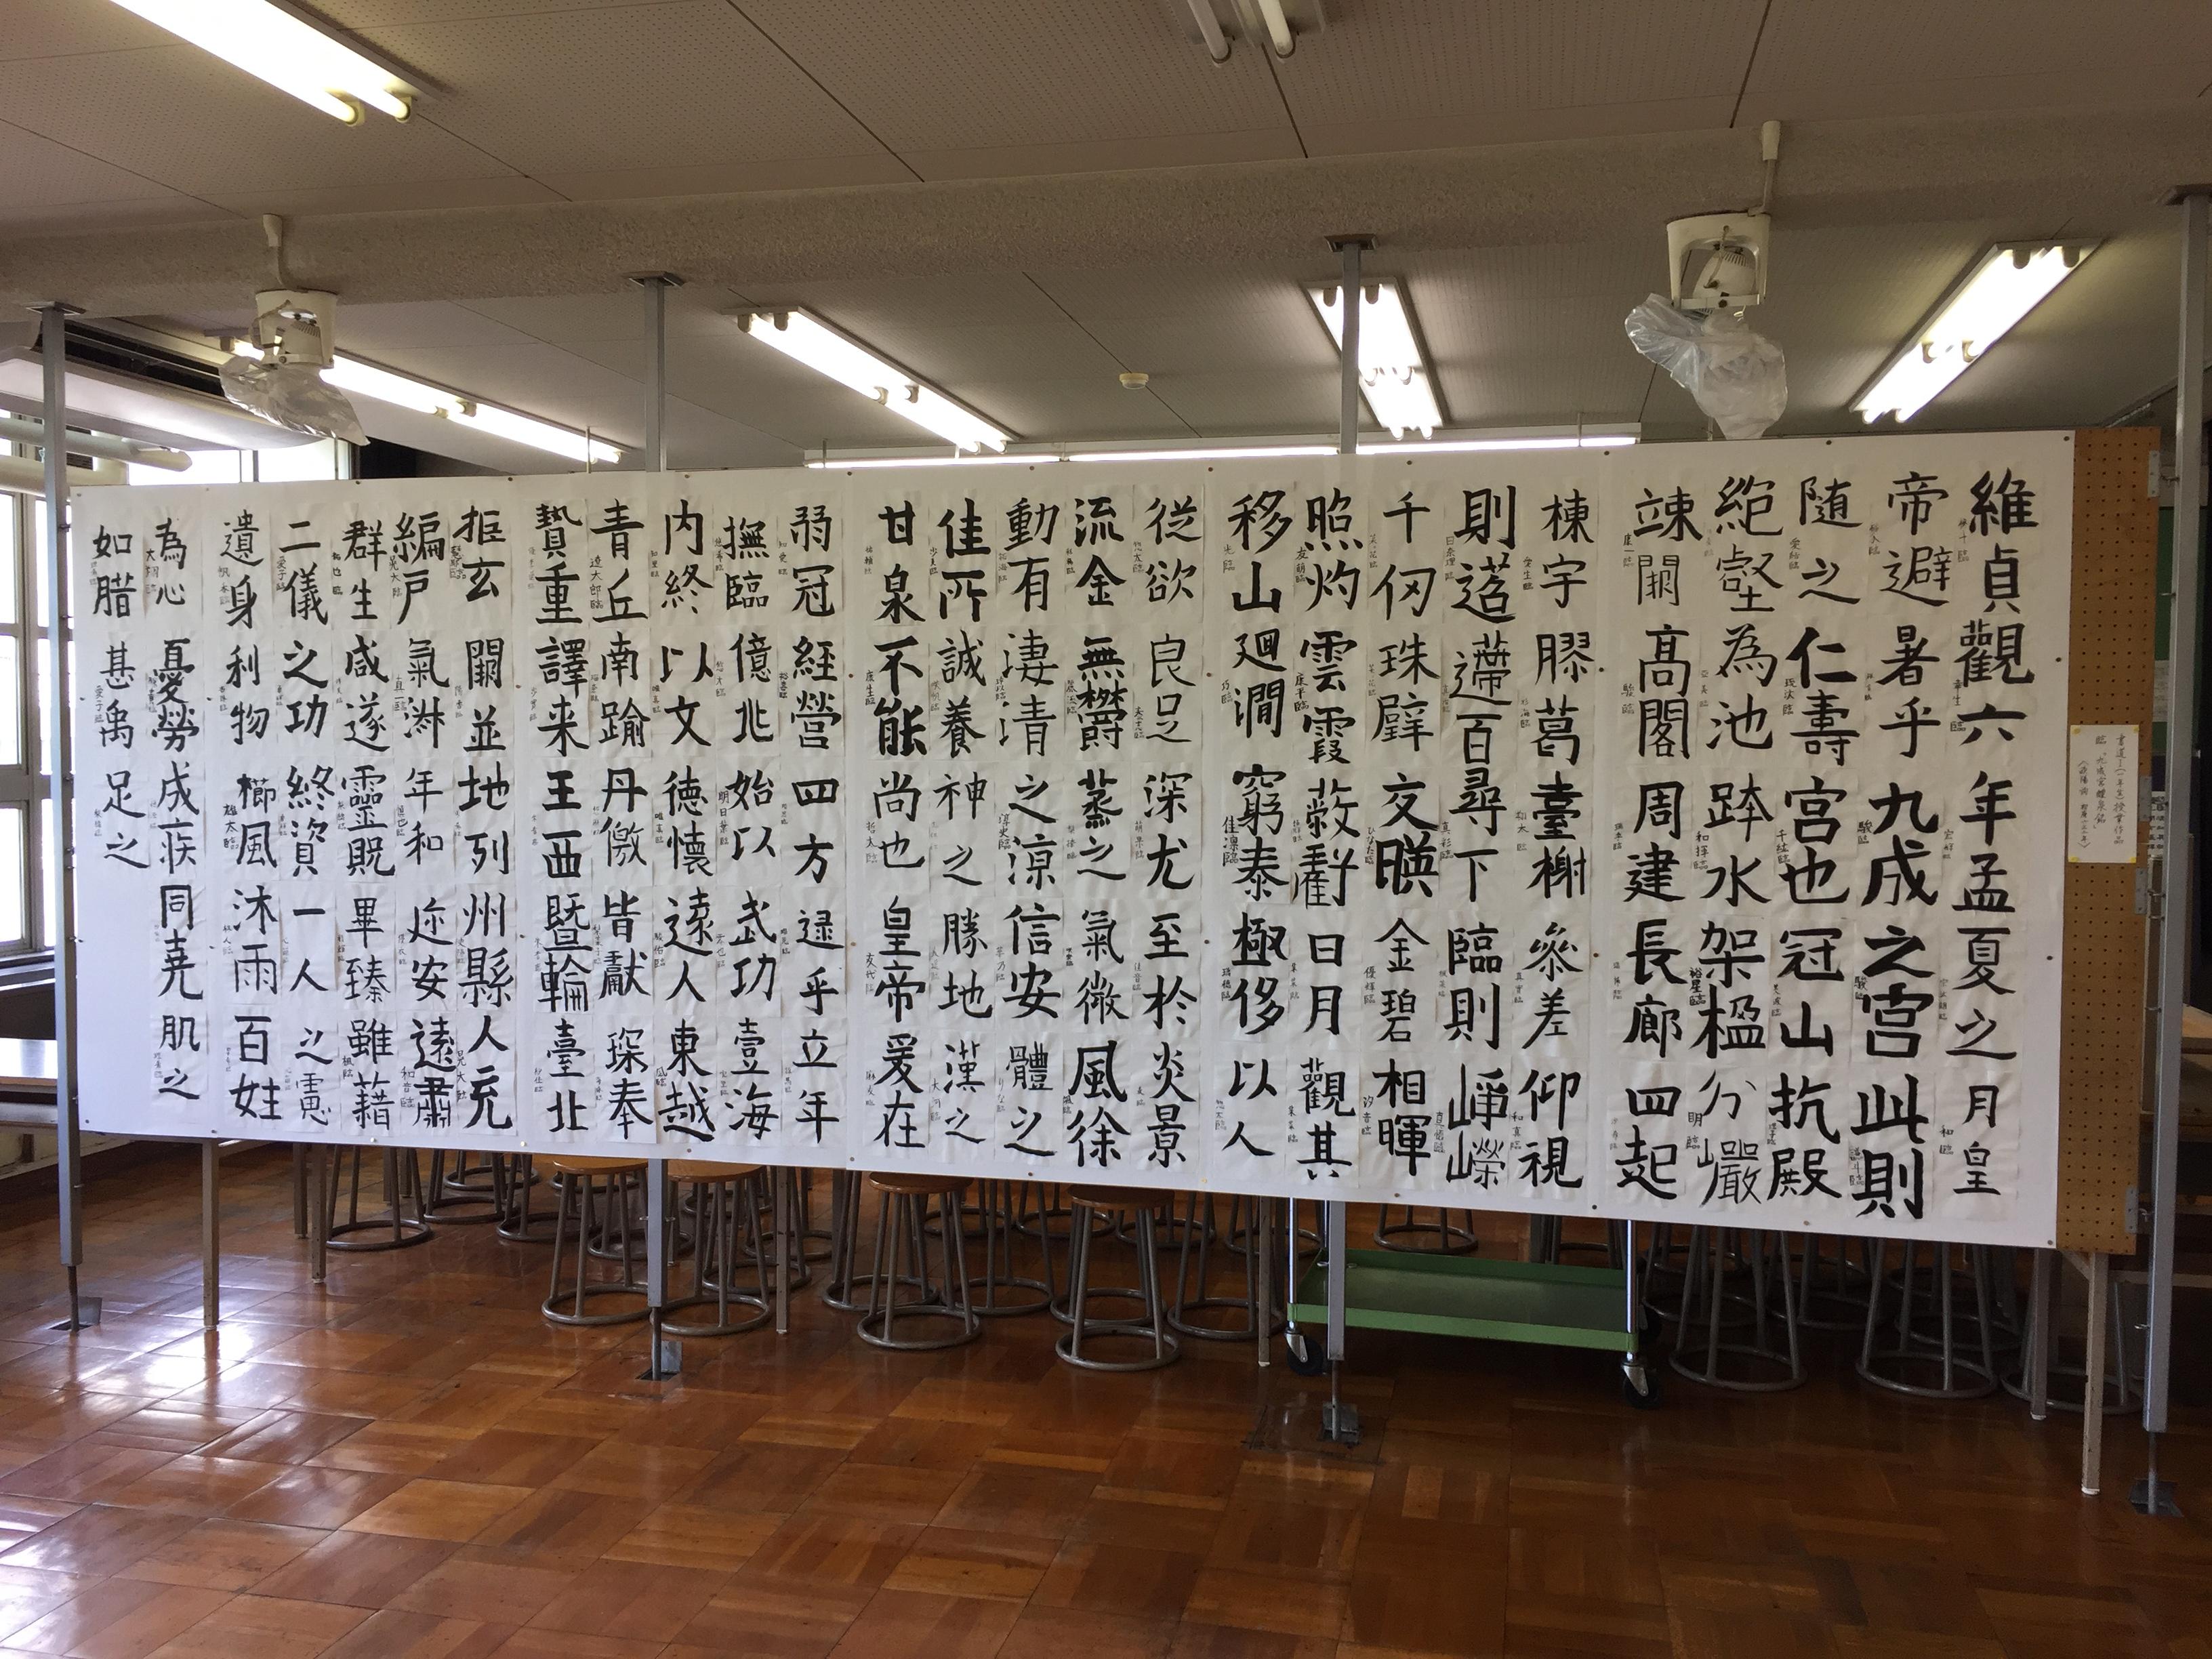 維貞觀六年孟夏之月皇
帝避暑乎九成之宮此則
随之仁壽宮也冠山抗殿
絶壑為池跨水架楹分巖
竦闕高閣周建長廊四起
棟宇膠葛臺榭參差仰視
則迢遰百尋下臨則崢嶸
千仞珠璧交暎金碧相暉
照灼雲霞蔽虧日月觀其
移山廻澗窮泰極侈以人
従欲良足深尤至於炎景
流金無欝蒸之氣微風徐
動有淒清之涼信安體之
佳所誠養神之勝地漢之
甘泉不能尚也皇帝爰在
弱冠経營四方逮乎立年
撫臨億兆始以武功壹海
内終以文徳懐遠人東越
青丘南踰丹徼皆獻琛奉
贄重譯来王西曁輪臺北
拒玄闕並地列州縣人充
編戸氣淑年和迩安遠肅
群生咸遂靈貺畢臻雖藉
二儀之功終資一人之慮
遺身利物櫛風沐雨百姓
為心憂勞成疾同堯肌之
如腊甚禹足之
臨「九成宮醴泉銘」